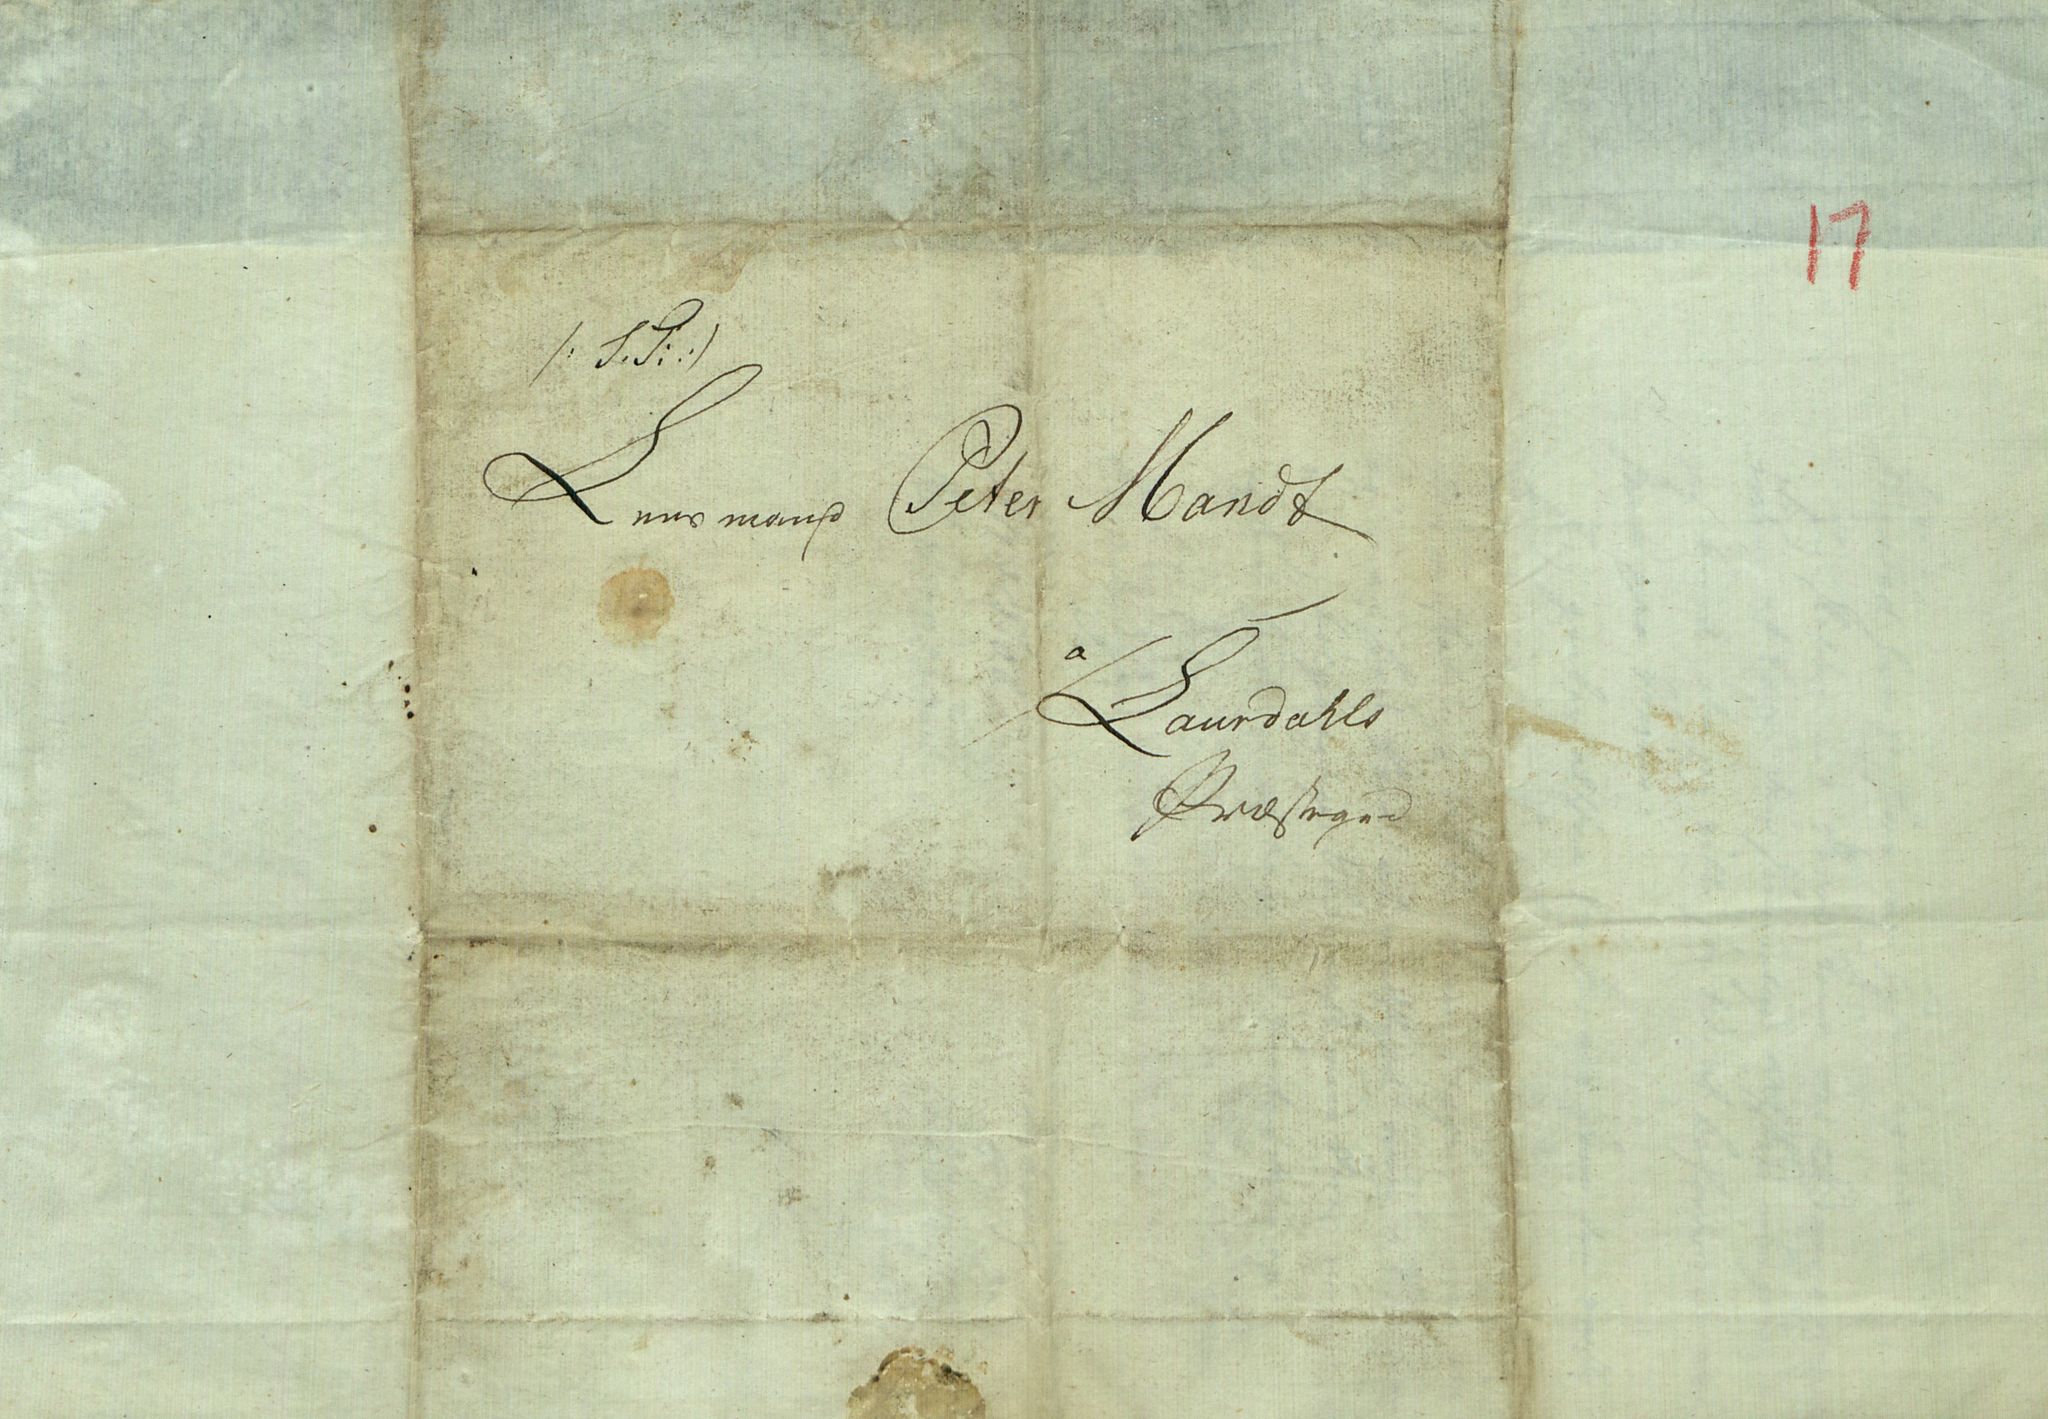 17
/: S. T: :/
Lensmand Peter Mandt
a
Laurdahls
Præstegield